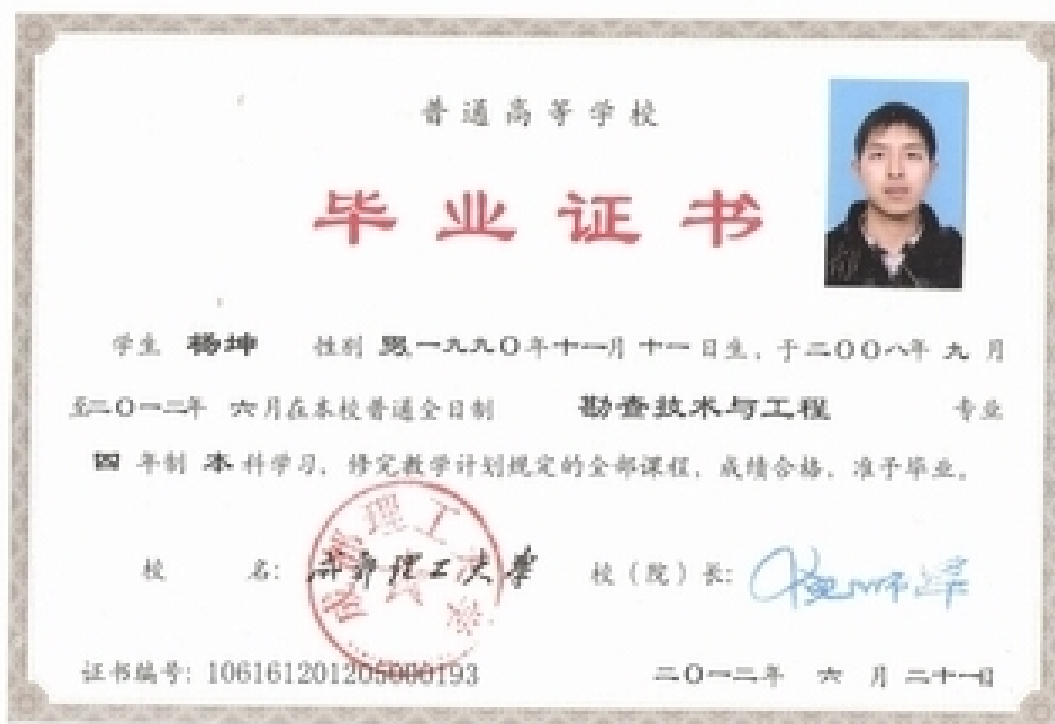 普通高等学校
毕业证书
学生 杨坤 性别 男，一九九〇年十一月十一日生，于二〇〇八年九月
至二〇一二年 六月在本校普通全日制 勘查技术与工程 专业
四年制本科学习，修完教学计划规定的全部课程，成绩合格，准予毕业。
校 名：成都理工大学 校（院）长：
证书编号：106161201205000193 二〇一二年 六月二十一日